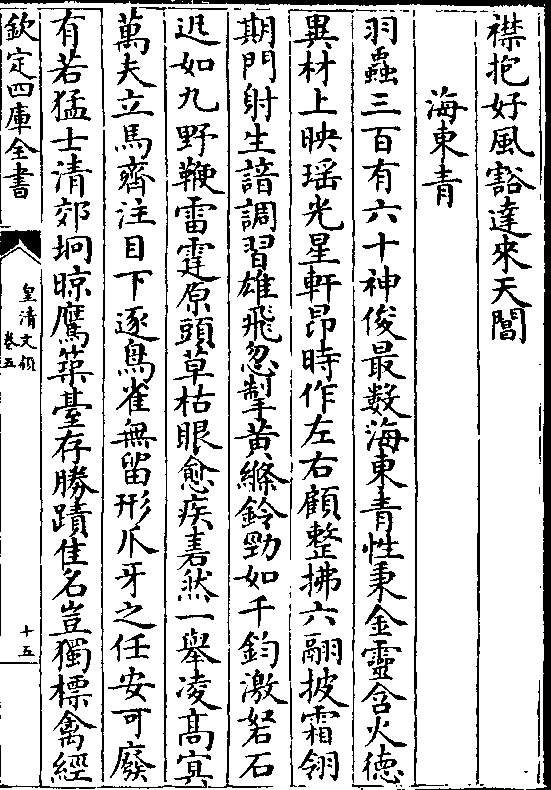 襟抱好風豁達來天閶
海東青
羽蟲三百有六十神俊最數海東青性秉金靈含火德
異材上映瑤光星軒昂時作左右顧整拂六翮披霜翎
期門射生諳調習雄飛忽掣黄絛鈴勁如千鈞激砮石
迅如九野鞭雷霆原頭草枯眼愈疾砉然一舉凌髙㝠
萬夫立馬齊注目下逐鳥雀無留形爪牙之任安可廢
有若猛士清郊坰晾鷹築臺存勝蹟隹名豈獨標禽經
欽定四庫全書
皇清文頴
卷五
十五